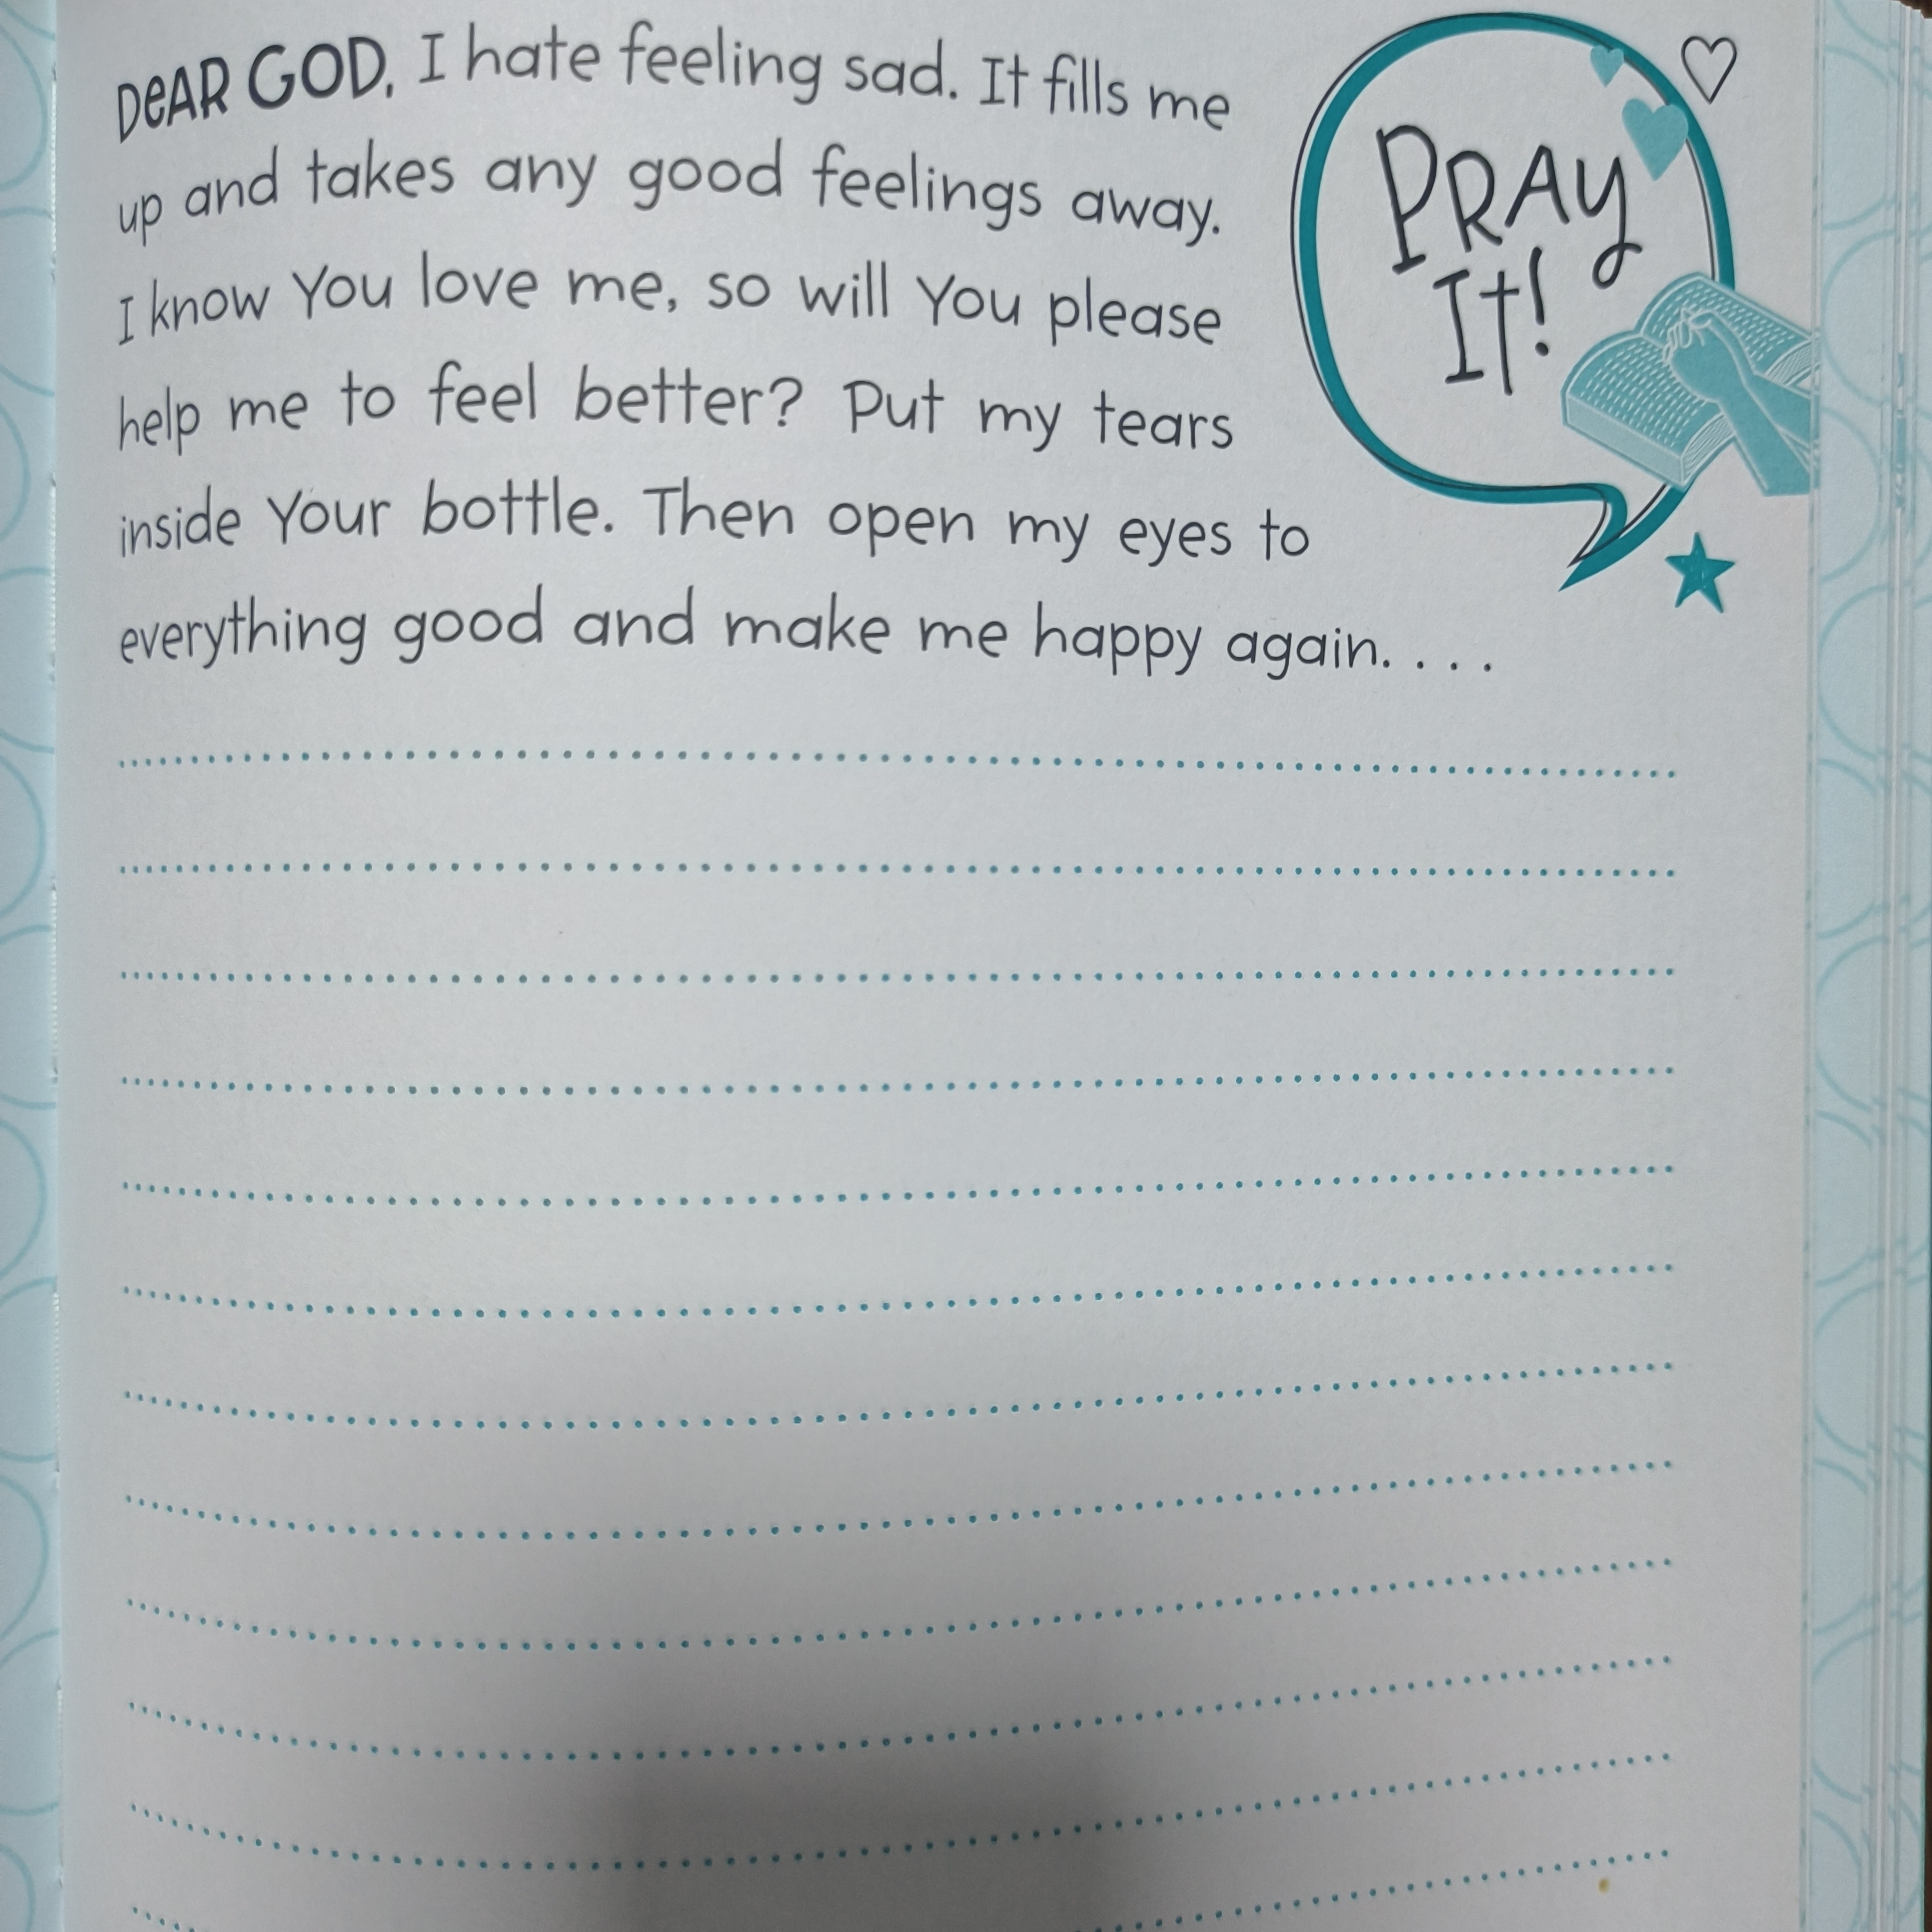 DeAR GOD, I hate feeling sad. It fills me
up and takes any good feelings away.
I know You love me, so will You please
help me to feel better? Put my tears
inside Your bottle. Then open my eyes to
everything good and make me happy again. . . .
PRAy
It!